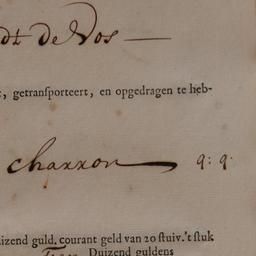 dt de Vos
, getransporteert, en opgedragen te heb-
Charron q: q.
izend guld. courant geld van 20 stuiv. 't stuk
Duizend guldens